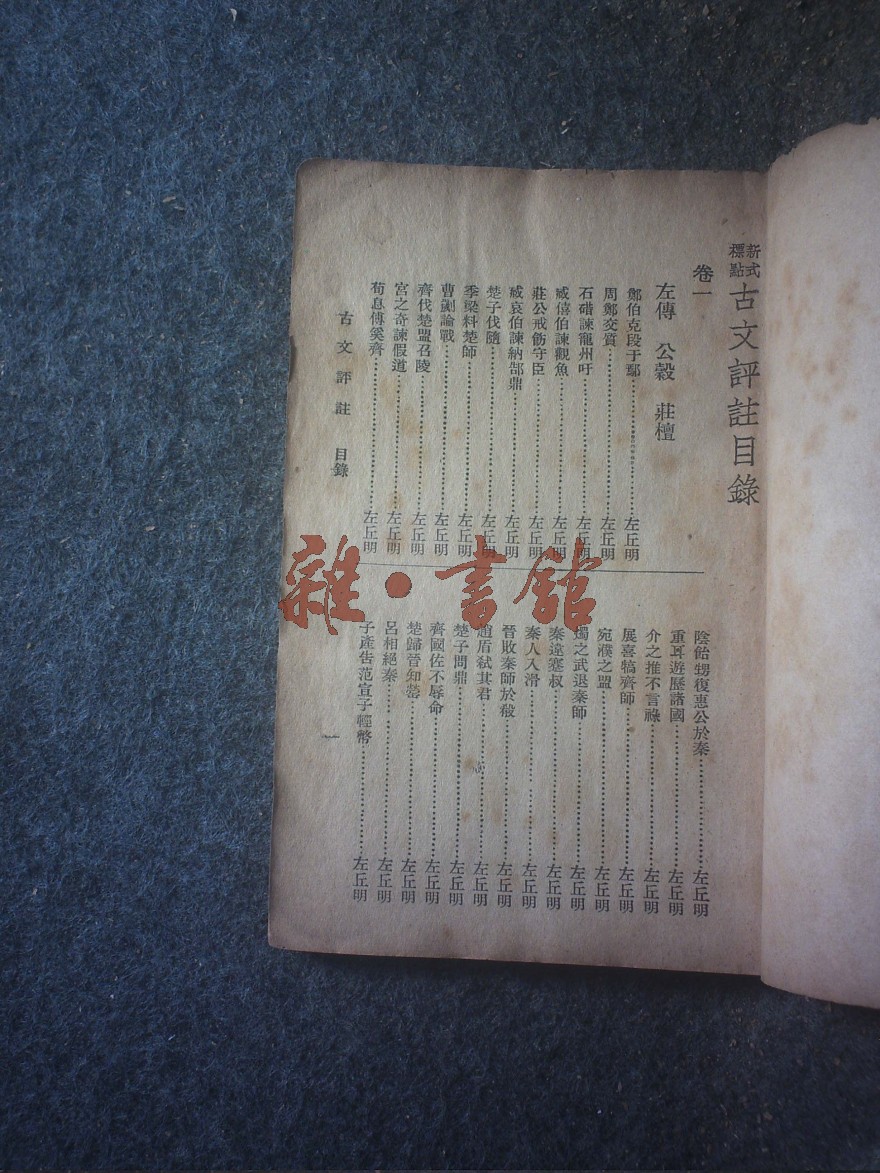 新式標點 古文評註目錄
卷一
左傳 公穀 莊檀
鄭伯克段于鄢……左丘明
周鄭交質……左丘明
石碏諫寵州吁……左丘明
臧僖伯諫觀魚……左丘明
莊公戒飭守臣……左丘明
臧哀伯諫納郜鼎……左丘明
楚子伐隨……左丘明
季梁料楚師……左丘明
曹劌論戰……左丘明
齊伐楚盟召陵……左丘明
宮之奇諫假道……左丘明
荀息傅奚齊……左丘明
陰飴甥復惠公於秦……左丘明
重耳遊歷諸國……左丘明
介之推不言祿……左丘明
展喜犒齊師……左丘明
宛濮之盟……左丘明
燭之武退秦師……左丘明
秦違蹇叔……左丘明
秦人入滑……左丘明
晉敗秦師於殽……左丘明
趙盾弒其君……左丘明
楚子問鼎……左丘明
齊國佐不辱命……左丘明
楚歸晉知罃……左丘明
呂相絕秦……左丘明
子產告范宣子輕幣……左丘明
古文評註 目錄
一
雜·書館